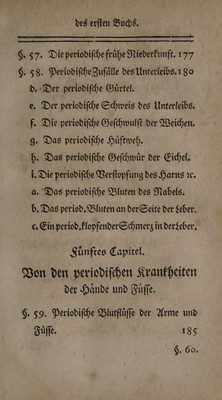 des ersten Buchs.
§. 57. Die periodische frühe Niederkunft. 177
§. 58. Periodische Zufälle des Unterleibs. 180
d. Der periodische Gürtel.
e. Der periodische Schweis des Unterleibs.
f. Die periodische Geschwulst der Weichen.
g. Das periodische Hüftweh.
h. Das periodische Geschwür der Eichel.
i. Die periodische Verstopfung des Harns ꝛc.
a. Das periodische Bluten des Nabels.
b. Das period. Bluten an der Seite der Leber.
c. Ein period. klopfender Schmerz in der Leber.
Fünftes Capitel.
Von den periodischen Krankheiten
der Hände und Füsse.
§. 59. Periodische Blutflüsse der Arme und
Füsse. 185
§. 60.